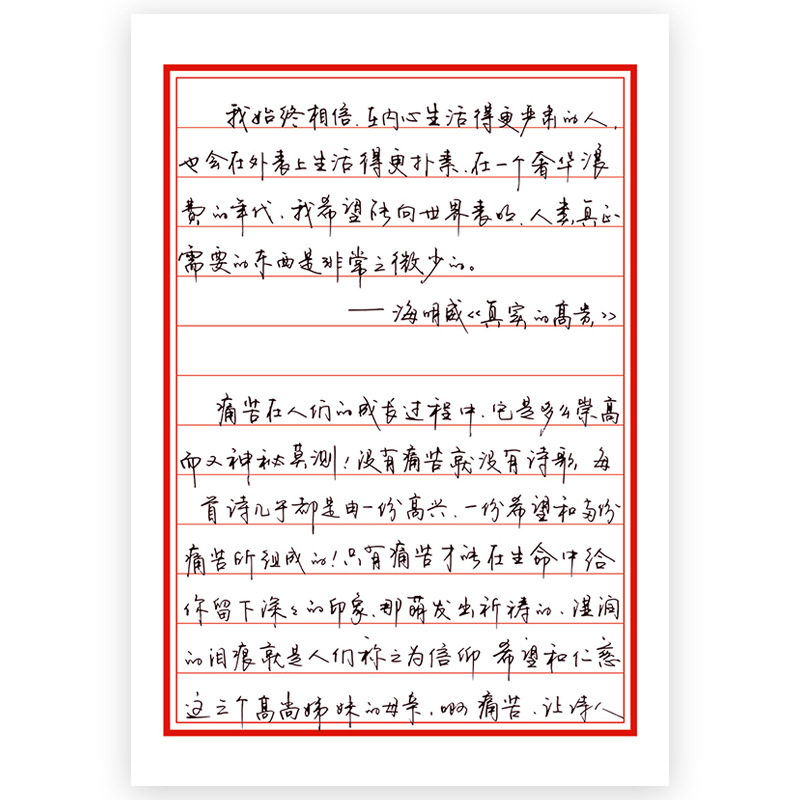 我始终相信，在内心生活得更严肃的人，
也会在外表上生活得更朴素，在一个奢华浪
费的年代，我希望能向世界表明，人类真正
需要的东西是非常之微少的。
——海明威《真实的高贵》
痛苦在人们的成长过程中，它是多么崇高
而又神秘莫测！没有痛苦就没有诗歌，每
首诗几乎都是由一份高兴，一份希望和两份
痛苦所组成的！只有痛苦才能在生命中给
你留下深々的印象，那萌发出祈祷的、湿润
的泪痕就是人们称之为信仰 希望和仁慈
这三个高尚姊妹的母亲，啊 痛苦，让诗人